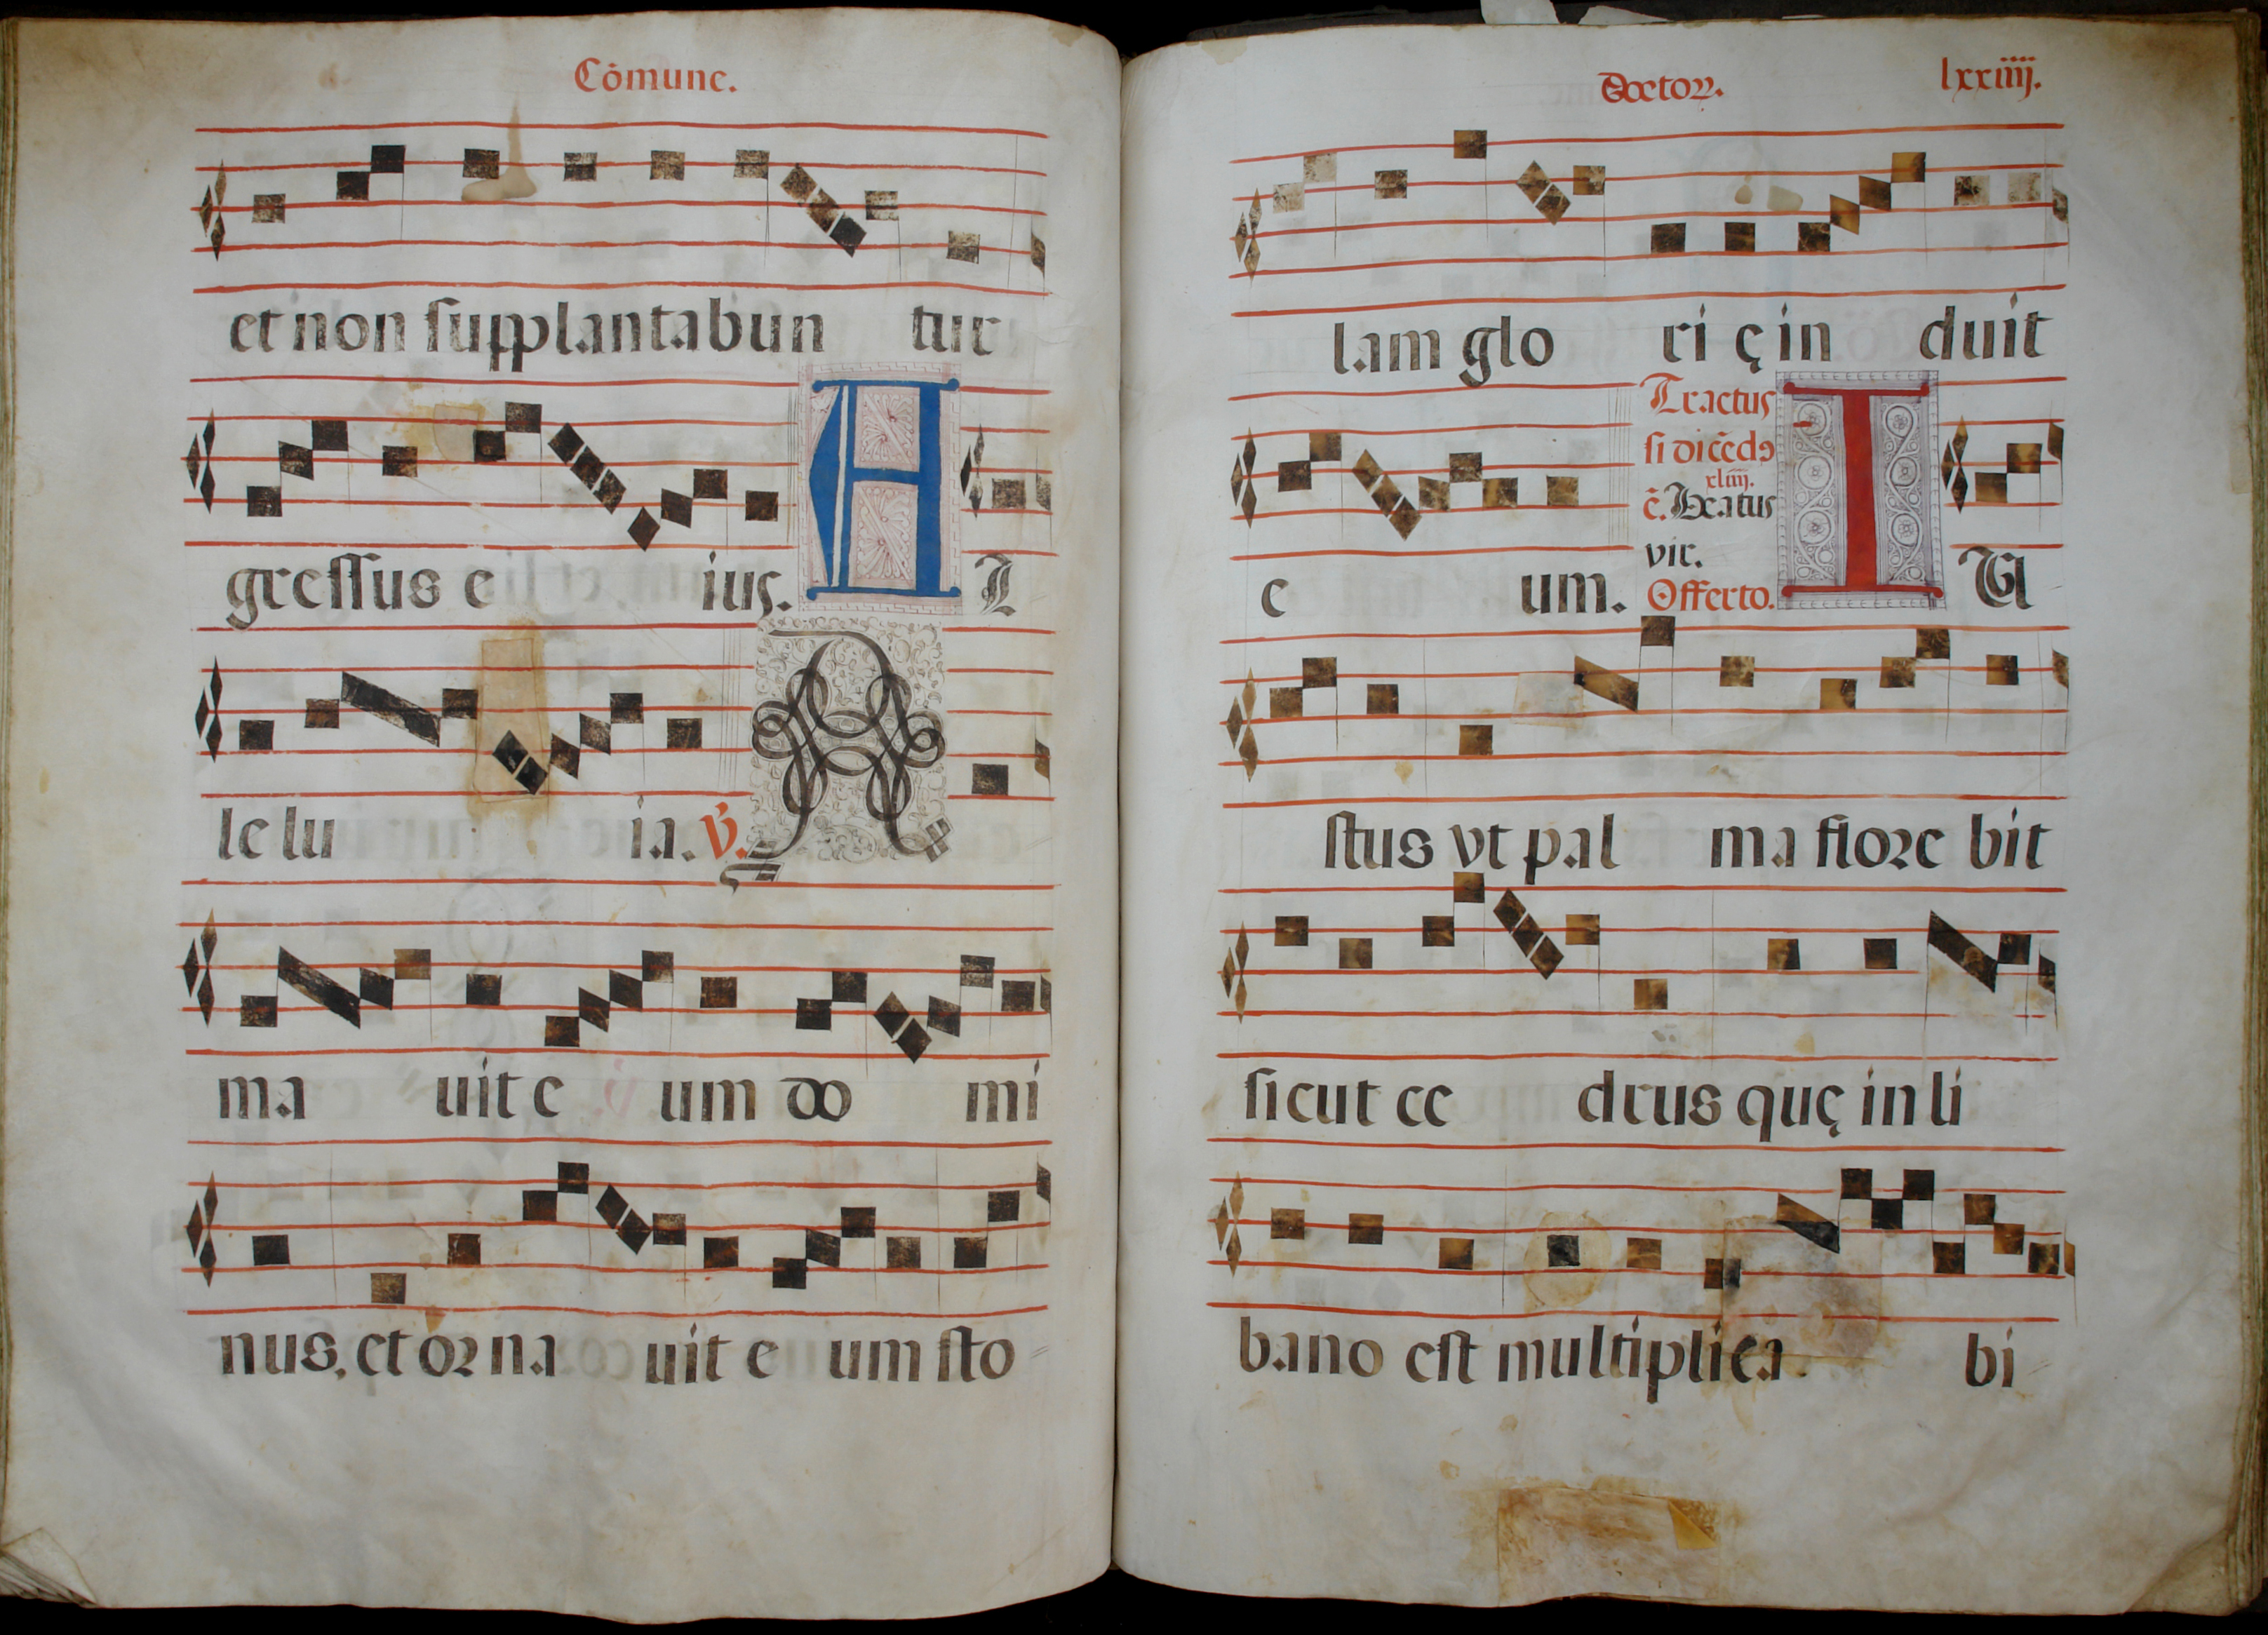 Cōmune.
et non ſupplantabun tur
greſſus e ius. A L
le lu ia. ℣. A
ma uit e um do mi
nus, et oꝛ na uit e um ſto
Doctoꝝ. lxxiiij.
lam glo ri ę in duit
Tractus
ſi dicēdꝰ
xliiij.
c̄. Beatus
vir.
e um. Offerto. I U
ſtus vt pal ma floꝛe bit
ſicut ce drus quę in li
bano eſt multiplica. bi